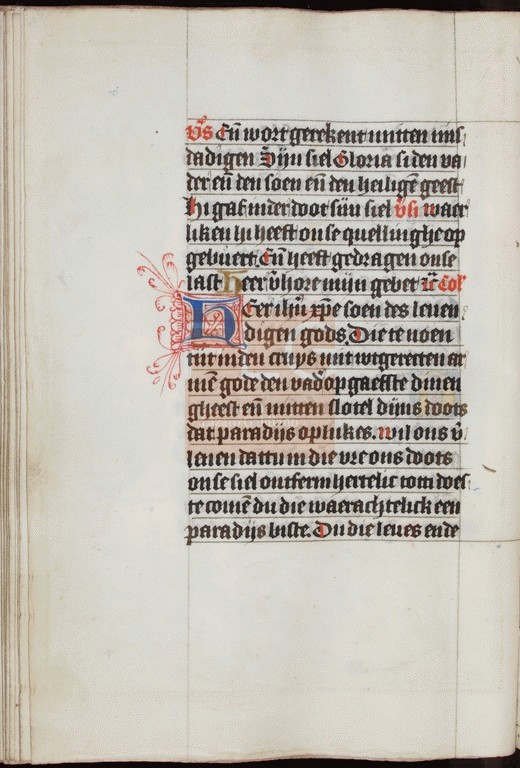 v̄s Eñ wort gerekent mitten mis
dadigen Dijn siel Gloria si den va
der eñ den soen eñ den heiligē geest
Hi gaf inder doot sijn siel v̄s waer
liken hi heeft onse quellinghe op
gebuert. Eñ heeft gedragen onse
last Heer v̄hore mijn gebet Coll
HEer ihū xp̄e soen des leuen
digen gods. Die te noen
tijt inden cruys mit wtgerecten ar
mē gode den vad̓ op gaefste dinen
gheest eñ mitten slotel dijns doots
dat paradijs oplukes. wil ons v̄
lenen dattu in die vre ons doots
onse siel ontferm hertelic tot di does
te comē du die waerachtelick een
paradijs biste. Du die leues ende